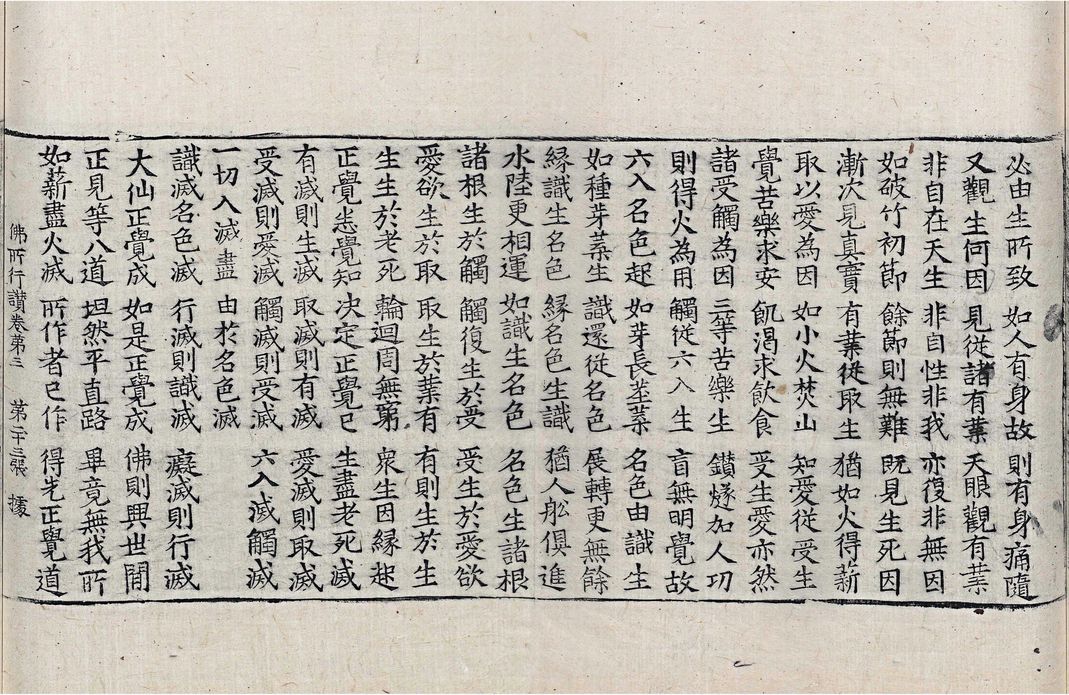 必由生所致 如人有身故 則有身痛隨
又觀生何因 見從諸有業 天眼觀有業
非自在天生 非自性非我 亦復非無因
如破竹初節 餘節則無難 既見生死因
漸次見真實 有業從取生 猶如火得薪
取以愛為因 如小火焚山 知愛從受生
覺苦樂求安 飢渴求飲食 受生愛亦然
諸受觸為因 三等苦樂生 鑚燧加人功
則得火為用 觸從六入生 盲無明覺故
六入名色起 如芽長莖葉 名色由識生
如種芽葉生 識還從名色 展轉更無餘
緣識生名色 緣名色生識 猶人舩俱進
水陸更相運 如識生名色 名色生諸根
諸根生於觸 觸復生於受 受生於愛欲
愛欲生於取 取生於業有 有則生於生
生生於老死 輪迴周無窮 衆生因緣起
正覺悉覺知 決定正覺已 生盡老死滅
有滅則生滅 取滅則有滅 愛滅則取滅
受滅則愛滅 觸滅則受滅 六入滅觸滅
一切入滅盡 由於名色滅
識滅名色滅 行滅則識滅 癡滅則行滅
大仙正覺成 如是正覺成 佛則興世閒
正見等八道 坦然平直路 畢竟無我所
如薪盡火滅 所作者已作 得先正覺道
佛所行讃卷第三 第二十三張 據